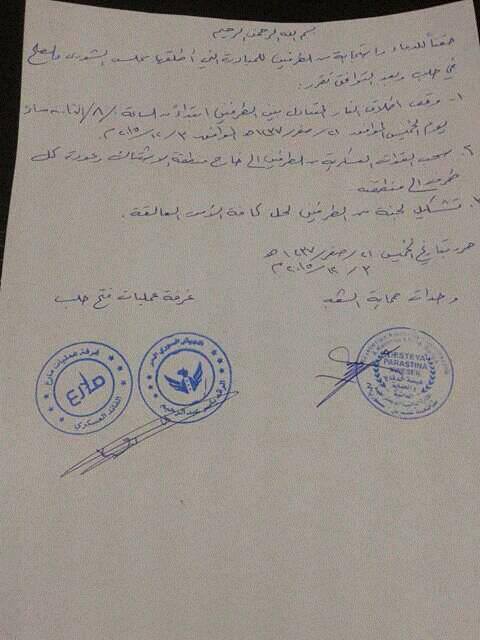 بسم الله الرحمن الرحيم
حقناً للدماء واستجابة من الطرفين للمبادرة التي أطلقها مجلس الشورى والصلح
في حلب وبعد التوافق تقرر:
١- وقف إطلاق النار المتبادل بين الطرفين ابتداءً من الساعة /٨/ الثامنة مساءً
يوم الخميس الموافق ٢١/صفر/١٤٣٧هـ الموافق ٣/١٢/٢٠١٥م
٢- سحب القوات العسكرية من الطرفين إلى خارج منطقة الاشتباك وعودة كل
طرف إلى منطقته
٣- تشكيل لجنة من الطرفين لحل كافة الأمور العالقة.
حرر بتاريخ الخميس ٢١/صفر/١٤٣٧هـ
٣/١٢/٢٠١٥م
وحدات حماية الشعب
غرفة عمليات فتح حلب
DESTEYA
PARASTINA
الجيش السوري الحر
غرفة عمليات مارع
مارع
القائد العسكري